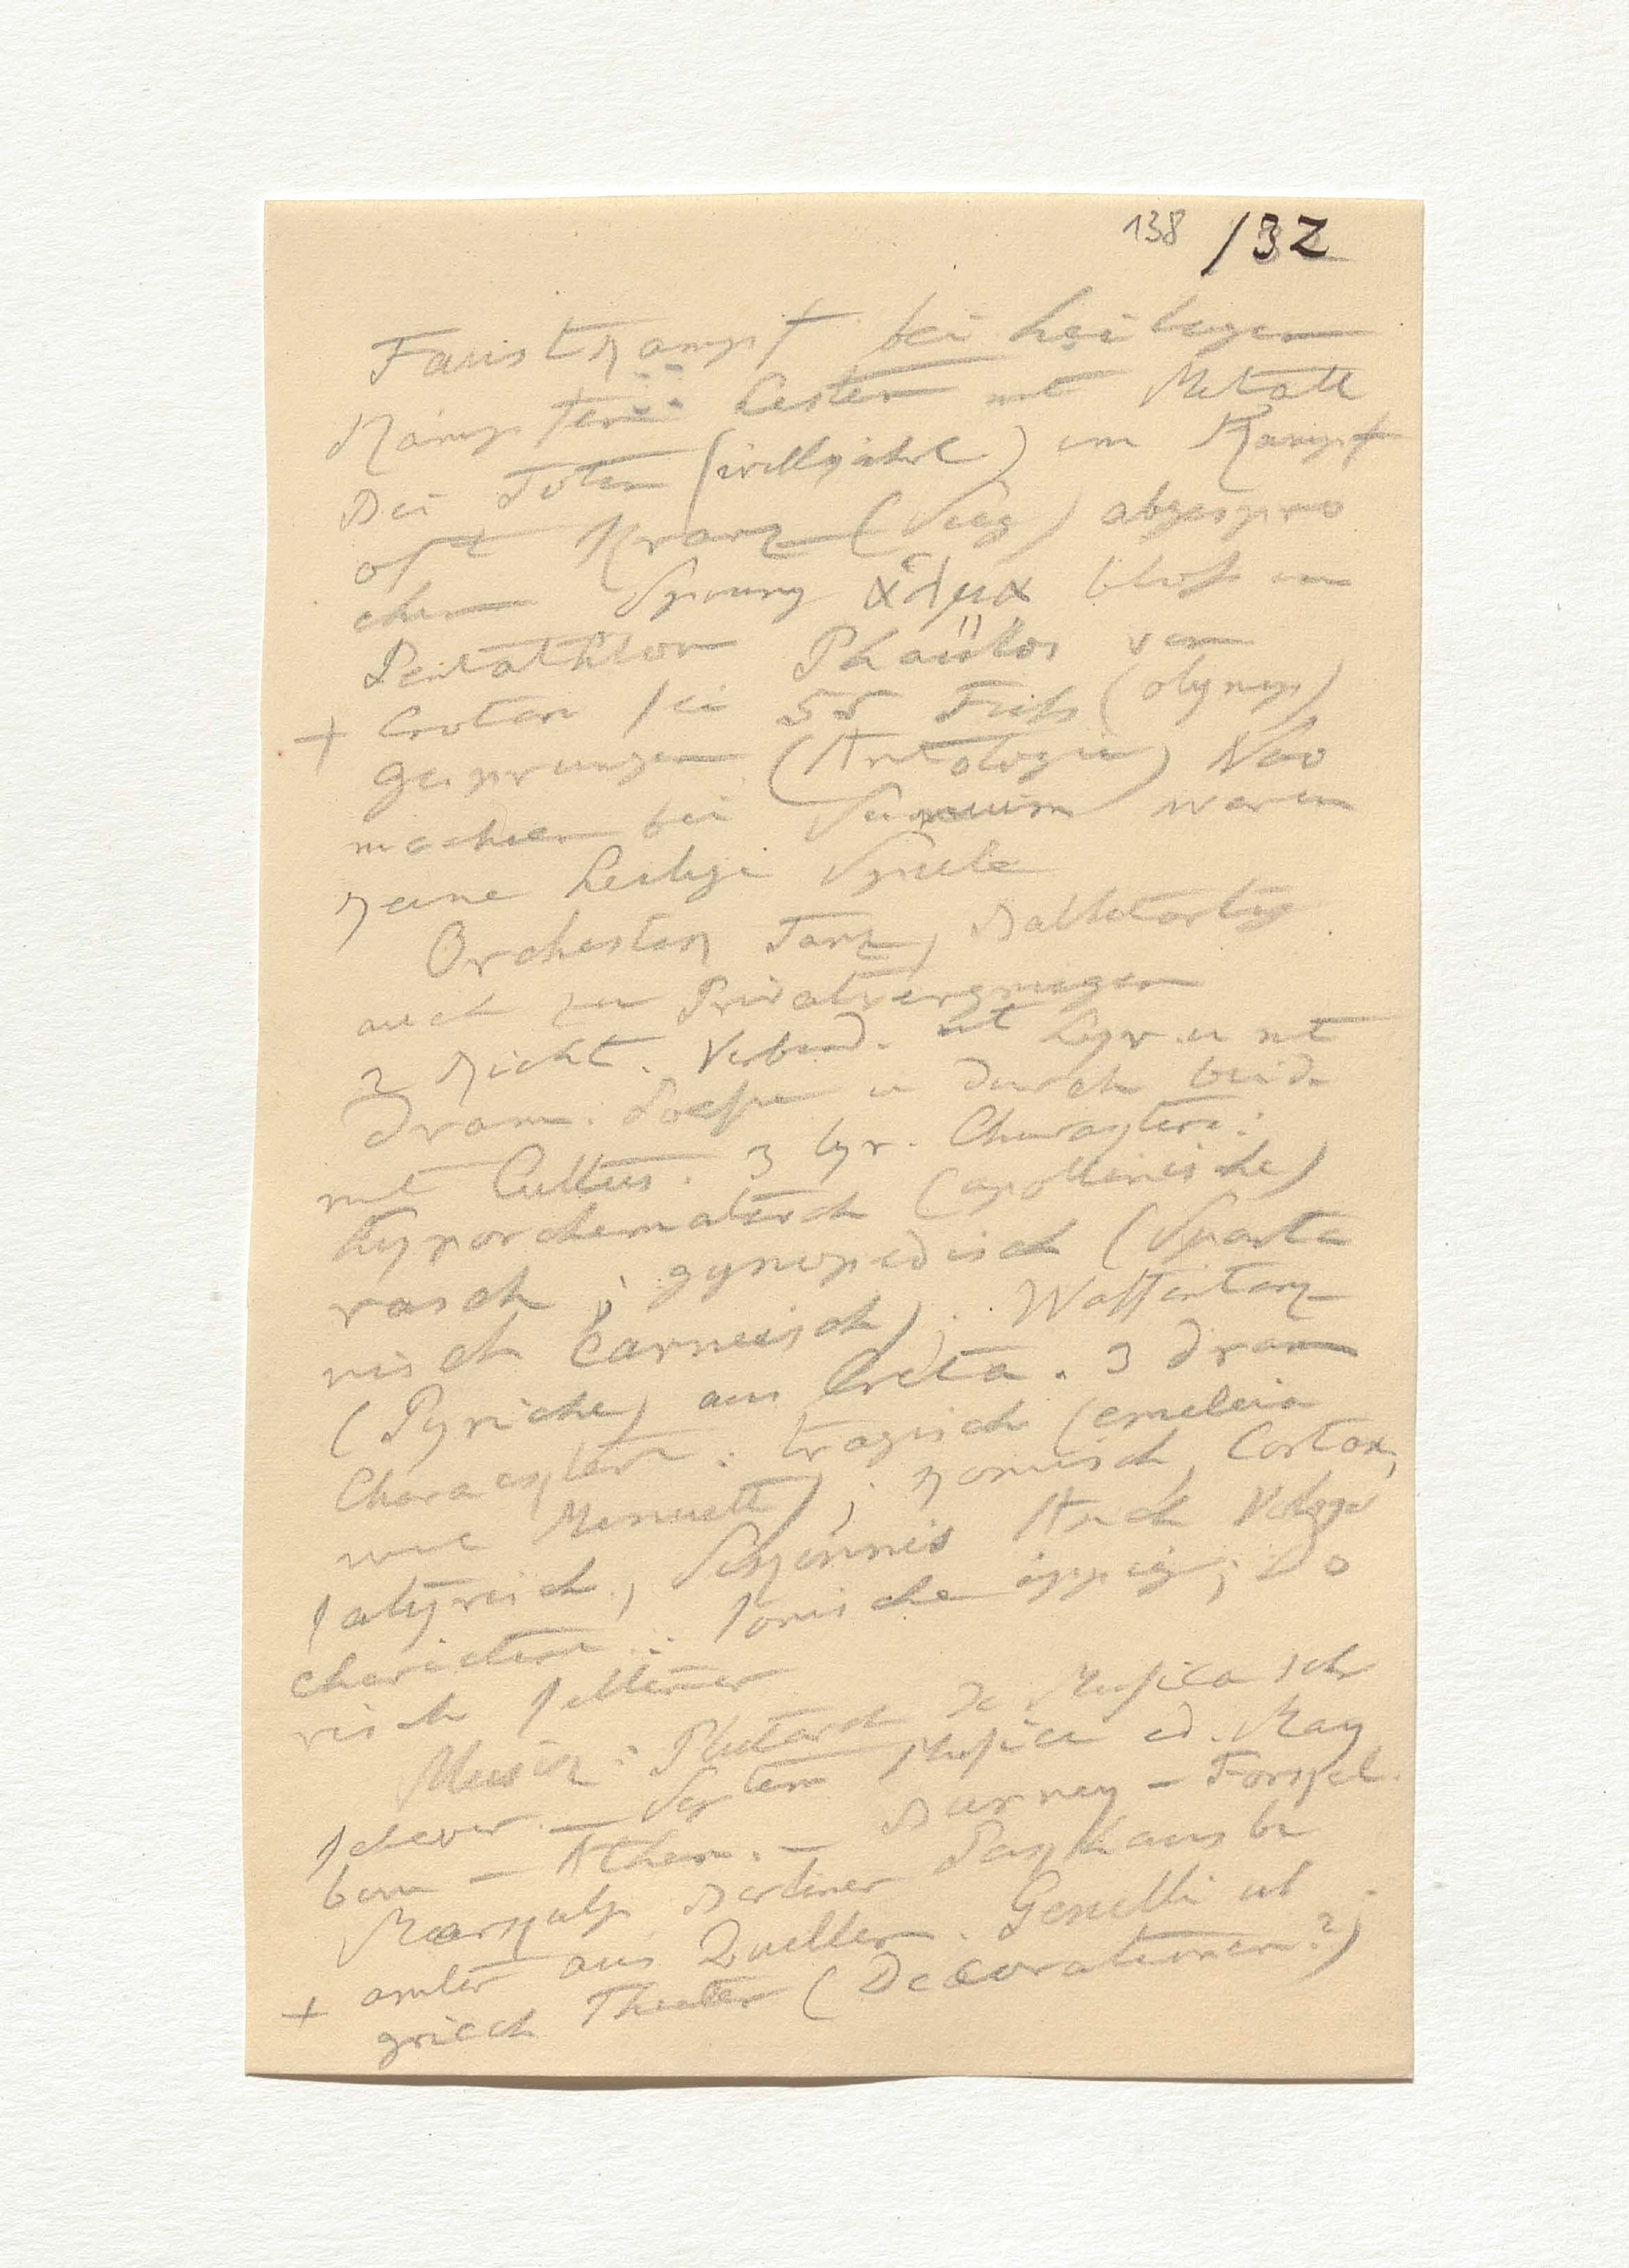 138 /32
Faustkampf bei heiligen
Kämpfen: Cesten mt Metall
Bei Töten (willkührl) im Kampf
oft Kranz (Sieg) abgespro
chen Sprung ἅλμα bloß im
Pentathlon Phaüllos von
+ Croton sei 55 Fuß (olymp)
gesprungen (Antologie) Nau
machien bei Sunium waren
keine heilige Spiele
Orchestik Tanz, Balletartig
auch zu Privatvergnügen
2 Richt. Verbind. mt Lyr. u mt
dram. Poesie u durch beide
mt Cultus. 3 lyr. Charaktere:
hyporchematisch (apollinische)
rasch; gymnopedisch (Sparta
nisch carneisch); Waffentanz
(Pyriche) aus Creta. 3 dram
Charaktere: tragisch (emeleia
wie Menuett); komisch, Cortax,
satyrisch, Sikinnis Auch Volks
charactere: Ionische üppig; Do
risch seltener
Musik: Plutarch de Musica sehr
schwer. – System Musica ed. May
bom – Athen. – Burney – Forkel.
Marpurg Berliner Packhausbe
amter aus Quellen. Genelli üb
+ griech Theater (Decorationen?)